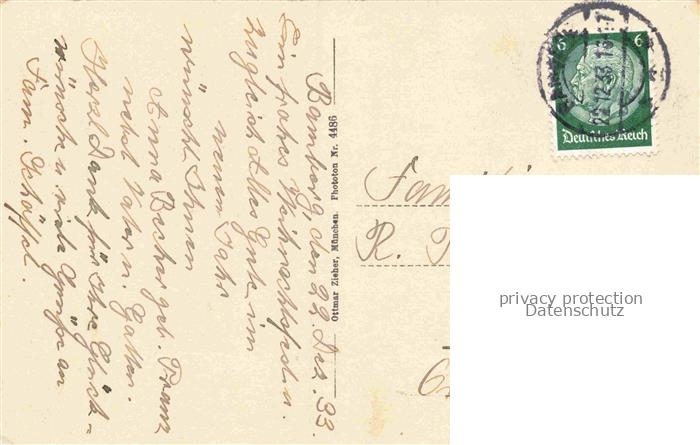 Bamberg, den 22. Dez. 33.
Ein frohes Weihnachtsfest u.
zugleich Alles Gute im
neuen Jahr
wünscht Ihnen
Anna Becher geb. Franz
nebst Vater u. Gatten.
Herzl. Dank für Ihre Glück-
wünsche u. viele Grüße an
Fam. Schöffel.
Ottmar Zieher, München. Phototon Nr. 4486
Fam
R.
6 6
Deutsches Reich
22.12.33
privacy protection
Datenschutz